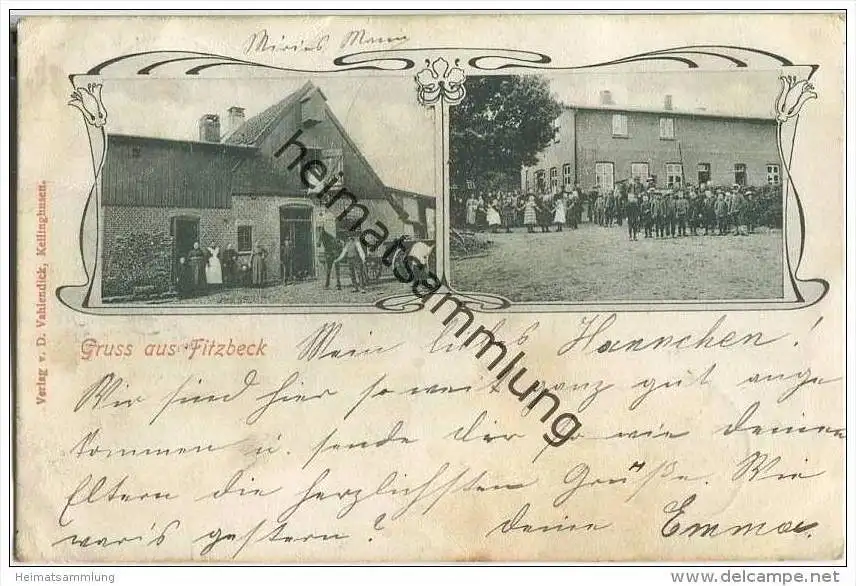 Mein Mann
Verlag v. D. Vahlendick, Kellinghusen.
Gruss aus Fitzbeck
Mein liebes Hannchen!
Wir sind hier soweit ganz gut ange
kommen u. sende dir so wie deinen
Eltern die herzlichsten Grüße. Wie
wars gestern? deine Emma.
heimatsammlung
heimatsammlung
© Heimatsammlung
http://www.delcampe.net